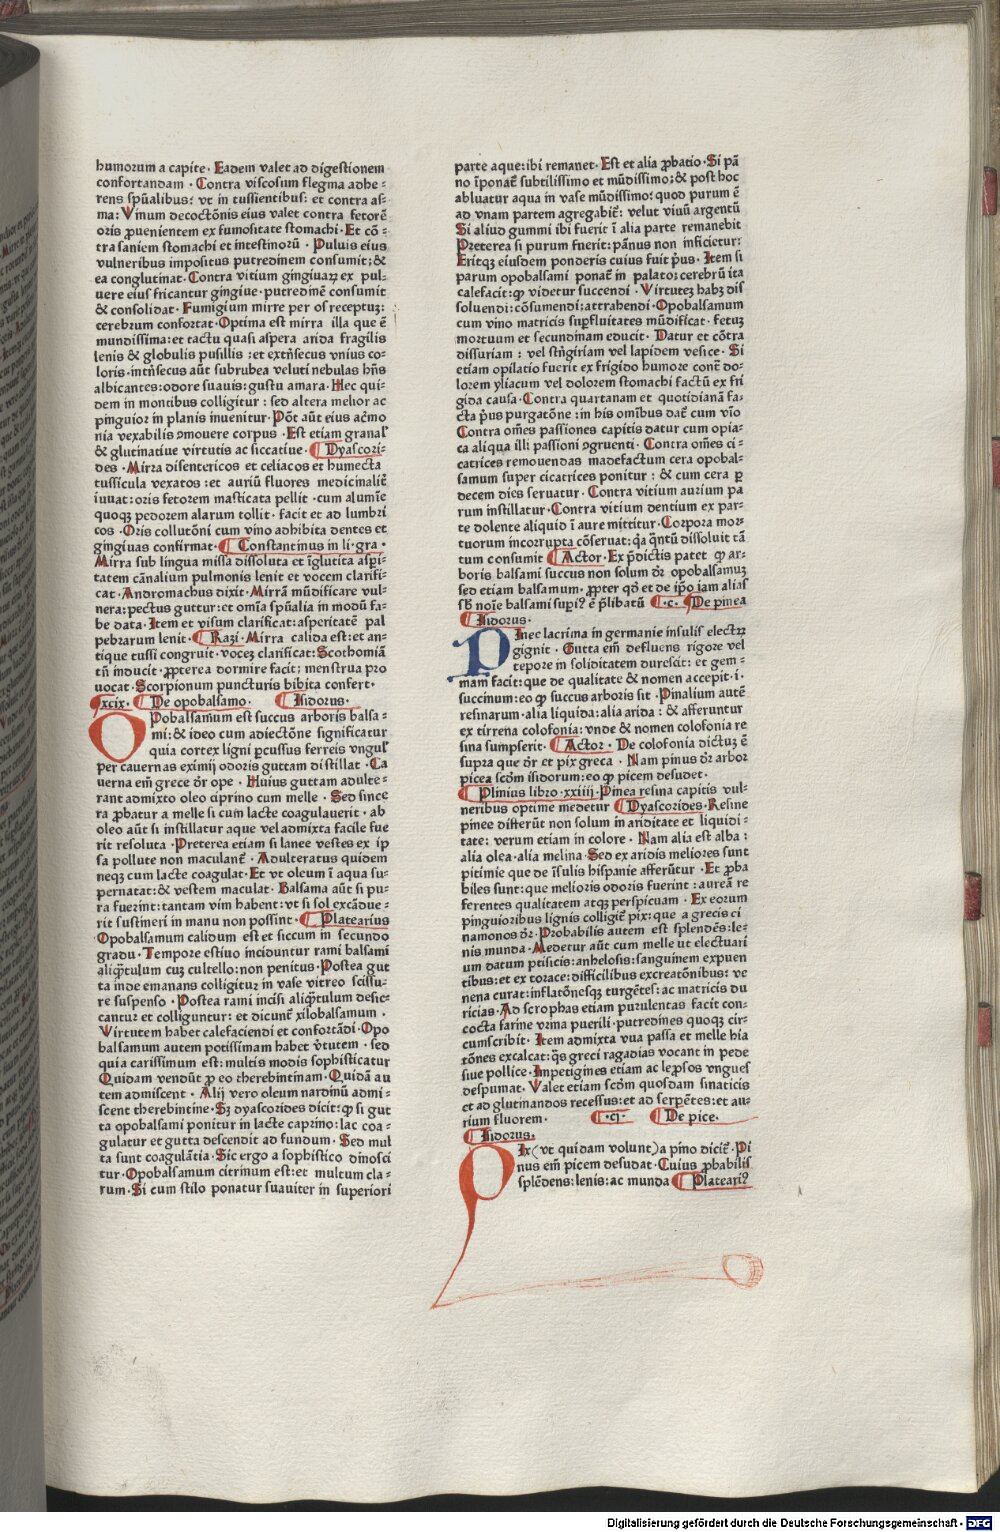 humorum a capite. Eadem valet ad digestionem
confortandam. Contra viscosum flegma adhe-
rens spũalibus: vt in tussientibus: et contra as-
ma: Vinum decoctõnis eius valet contra fetorẽ
oris ꝓuenientem ex fumositate stomachi. Et cõ-
tra saniem stomachi et intestinorũ. Puluis eius
vulneribus impositus putredinem consumit: &
ea conglutinat. Contra vitium gingiuaꝝ ex pul-
uere eius fricantur gingiue. putredinẽ consumit
& consolidat. Fumigium mirre per os receptuʒ:
cerebrum confortat. Optima est mirra illa que ẽ
mundissima: et tactu quasi aspera arida fragilis
lenis & globulis pusillis: et extñsecus vnius co-
loris. intñsecus aũt subrubea veluti nebulas hñs
albicantes: odore suauis: gustu amara. Hec qui-
dem in montibus colligitur: sed altera melior ac
pinguior in planis inuenitur. Põt aũt eius acrimo
nia vexabilis ꝯmouere corpus. Est etiam granaľ
& glutinatiue virtutis ac siccatiue. Dyascori-
des. Mirra disentericos et celiacos et humecta
tussicula vexatos: et auriũ fluores medicinalit̃
iuuat: oris fetorem masticata pellit. cum alumĩe
quoqʒ pedorem alarum tollit. facit et ad lumbri
cos. Oris collutõni cum vino adhibita dentes et
gingiuas confirmat. Constantinus in li. gra.
Mirra sub lingua missa dissoluta et ĩglutita asꝑi-
tatem cãnalium pulmonis lenit et vocem clarifi-
cat. Andromachus dixit. Mirrã mũdificare vul-
nera: pectus guttur: et omĩa spũalia in modũ fa-
be data. Item et visum clarificat: asperitatẽ pal
pebrarum lenit. Razi. Mirra calida est: et an-
tique tussi congruit. voceʒ clarificat: Scothomiã
tñ inducit. ꝓpterea dormire facit: menstrua pro
uocat. Scorpionum puncturis bibita confert.
xcix. De opobalsamo. Isidorus.
Opobalsamum est succus arboris balsa-
mi: & ideo cum adiectõne significatur
quia cortex ligni ꝑcussus ferreis vnguľ
per cauernas eximij odoris guttam distillat. Ca
uerna em̃ grece dr̃ ope. Huius guttam adulte-
rant admixto oleo ciprino cum melle. Sed since
ra ꝓbatur a melle si cum lacte coagulauerit. ab
oleo aũt si instillatur aque vel admixta facile fue
rit resoluta. Preterea etiam si lanee vestes ex ip
sa pollute non maculant̃. Adulteratus quidem
neqʒ cum lacte coagulat. Et vt oleum ĩ aqua su-
pernatat: & vestem maculat. Balsama aũt si pu-
ra fuerint: tantam vim habent: vt si sol excãdue-
rit sustineri in manu non possint. Platearius
Opobalsamum calidum est et siccum in secundo
gradu. Tempore estiuo inciduntur rami balsami
aliq̃tulum cuʒ cultello: non penitus. Postea gut
ta inde emanans colligitur in vase vitreo scissu-
re suspenso. Postea rami incisi aliq̃tulum desic-
cantur et colliguntur: et dicunt̃ xilobalsamum.
Virtutem habet calefaciendi et confortãdi. Opo
balsamum autem potissimam habet v̓tutem. sed
quia carissimum est: multis modis sophisticatur
Quidam vendũt ꝓ eo therebintinam. Quidã au
tem admiscent. Alij vero oleum nardinũ admi-
scent therebintine. Sʒ dyascorides dicit: ꝙ si gut
ta opobalsami ponitur in lacte caprino: lac coa-
gulatur et gutta descendit ad fundum. Sed mul
ta sunt coagulãtia. Sic ergo a sophistico dinosci
tur. Opobalsamum citrinum est: et multum cla-
rum. Si cum stilo ponatur suauiter in superiori
parte aque: ibi remanet. Est et alia ꝓbatio. Si pã
no ĩponat̃ subtilissimo et mũdissimo: & post hoc
abluatur aqua in vase mũdissimo: quod purum ẽ
ad vnam partem agregabit̃: velut viuũ argentũ
Si aliud gummi ibi fuerit ĩ alia parte remanebit
Preterea si purum fuerit: pãnus non inficietur:
Eritqʒ eiusdem ponderis cuius fuit p̓us. Item si
parum opobalsami ponat̃ in palato: cerebrũ ita
calefacit: ꝙ videtur succendi. Virtuteʒ habʒ dis
soluendi: cõsumendi: attrahendi. Opobalsamum
cum vino matricis suꝑfluitates mũdificat. fetuʒ
mortuum et secundinam educit. Datur et cõtra
dissuriam: vel strĩgiriam vel lapidem vesice. Si
etiam opilatio fuerit ex frigido humore contʳ do-
lorem yliacum vel dolorem stomachi factũ ex fri
gida causa. Contra quartanam et quotidianã fa-
cta p̓us purgatõne: in his omĩbus dat̃ cum vĩo
Contra om̃es passiones capitis datur cum opia-
ca aliqua illi passioni ꝯgruenti. Contra om̃es ci-
catrices remouendas madefactum cera opobal-
samum super cicatrices ponitur: & cum cera ꝑ
decem dies seruatur. Contra vitium aurium pa
rum instillatur. Contra vitium dentium ex par-
te dolente aliquid ĩ aure mittitur. Corpora mor-
tuorum incorrupta cõseruat: q̃a q̃ntũ dissoluit tã
tum consumit. Actor. Ex p̃dictis patet ꝙ ar-
boris balsami succus non solum dr̃ opobalsamuʒ
sed etiam balsamum. ꝓpter qd̓ et de ip̃o iam alias
sb̓ noĩe balsami supi? ẽ p̃libatũ .c. De pinea
Isidorus.
Pinee lacrima in germanie insulis electꝝ
gignit. Gutta em̃ defluens rigore vel
tepore in soliditatem durescit: et gem-
mam facit: que de qualitate & nomen accepit. i.
succinum: eo ꝙ succus arboris sit. Pinalium autẽ
resinarum. alia liquida: alia arida: & afferuntur
ex tirrena colofonia: vnde & nomen colofonia re
sina sumpserit. Actor. De colofonia dictuʒ ẽ
supra que dr̃ et pix greca. Nam pinus dr̃ arbor
picea scd̃m isidorum: eo ꝙ picem desudet.
Plinius libro. xxiiij. Pinea resina capitis vul-
neribus optime medetur. Dyascorides. Resine
pinee differũt non solum in ariditate et liquidi-
tate: verum etiam in colore. Nam alia est alba:
alia olea. alia melina. Sed ex aridis meliores sunt
pitimie que de ĩsulis hispanie afferũtur. Et ꝓba
biles sunt: que melioris odoris fuerint: aureã re
ferentes qualitatem atqʒ perspicuam. Ex eorum
pinguioribus lignis colligit̃ pix: que a grecis ci
namonos dr̃. Probabilis autem est splendẽs: le-
nis munda. Medetur aũt cum melle ut electuari
um datum ptisicis: anhelosis: sanguinem expuen
tibus: et ex torace: difficilibus excreatõnibus: ve
nena curat: inflatõnesqʒ turgẽtes: ac matricis du
ricias. Ad scrophas etiam purulentas facit con-
cocta farine vrina puerili. putredines quoqʒ cir-
cumscribit. Item admixta vua passa et melle hia
tõnes excalcat: q̃s greci ragadias vocant in pede
siue pollice. Impetigines etiam ac leprosos vngues
despumat. Valet etiam scd̃m quosdam sinaticis
et ad glutinandos recessus: et ad serpẽtes: et au-
rium fluorem. .cj. De pice.
Isidorus.
Pix (vt quidam volunt) a pino dicit̃. Pi
nus em̃ picem desudat. Cuius ꝓbabilis
splẽdens: lenis: ac munda. Plateari?
Digitalisierung gefördert durch die Deutsche Forschungsgemeinschaft - DFG